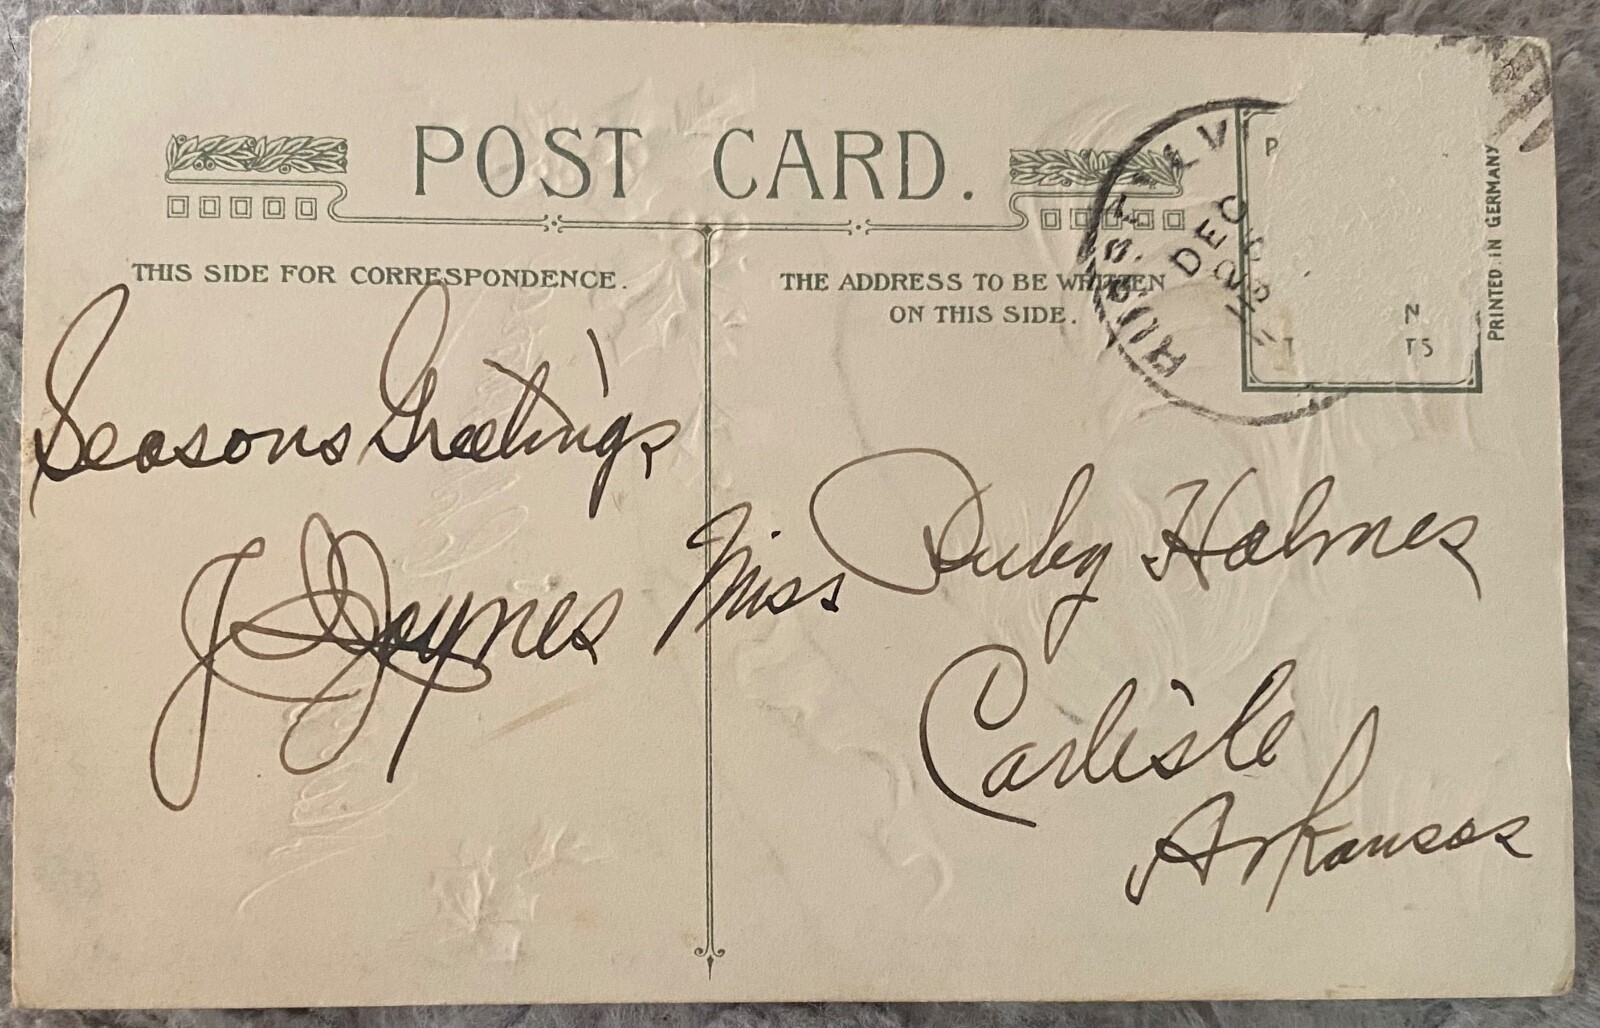 POST CARD.
THIS SIDE FOR CORRESPONDENCE.
THE ADDRESS TO BE WRITTEN
ON THIS SIDE.
PRINTED IN GERMANY
P
N
T TS
DEC
Seasons Greetings
J Joynes
Miss Ruby Holmes
Carlisle
Arkansas